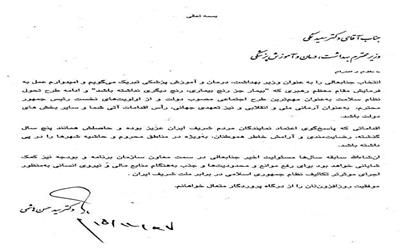 بسمه تعالی
جناب آقای دکتر سعید نمکی
وزیر محترم بهداشت، درمان و آموزش پزشکی
با سلام و احترام
انتخاب جنابعالی را به عنوان وزیر بهداشت، درمان و آموزش پزشکی تبریک می‌گویم و امیدوارم عمل به
فرمایش مقام معظم رهبری که "بیمار جز رنج بیماری، رنج دیگری نداشته باشد" و ادامه طرح تحول
نظام سلامت به‌عنوان مهم‌ترین طرح اجتماعی مصوب دولت و از اولویت‌های نخست رئیس جمهور
محترم، به‌عنوان آرمانی ملی و انقلابی و نیز تعهدی جهانی، رأس اقدامات آتی شما و سایر بخش های
دولت باشد.
اقداماتی که پاسخ‌گوی اعتماد نمایندگان مردم شریف ایران عزیز بوده و حاصلش همانند پنج سال
گذشته، رضایت‌مندی و آرامش خاطر هموطنان، به‌ویژه در مناطق محروم و حاشیه شهرها را در پی
داشته باشد.
ان‌شاءالله سابقه سال‌ها مسئولیت اخیر جنابعالی در سمت معاون سازمان برنامه و بودجه نیز کمک
شایانی خواهد بود برای رفع موانع و محدودیت‌ها و جذب به‌هنگام منابع مالی و نیروی انسانی به‌منظور
اجرای موثرتر تکالیف نظام جمهوری اسلامی در برابر ملت شریف ایران .
موفقیت روزافزون‌تان را از درگاه پروردگار متعال خواهانم.
دکتر سید حسن هاشمی